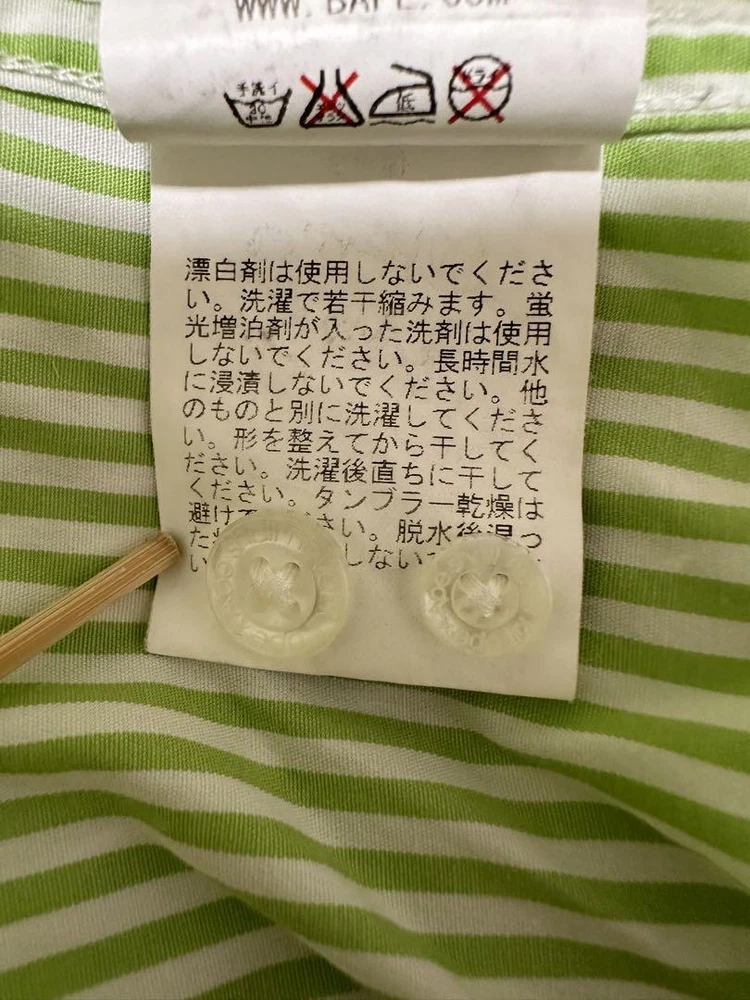 WWW.BAPE.COM
手洗イ
30
低
ドライ
漂白剤は使用しないでくださ
い。洗濯で若干縮みます。蛍
光増泊剤が入った洗剤は使用
しないでください。長時間水
に浸漬しないでください。他
のものと別に洗濯してくださ
い。形を整えてから干してく
ださい。洗濯後直ちに干して
ください。タンブラー乾燥は
避けて さい。脱水後湿っ
た しない
い